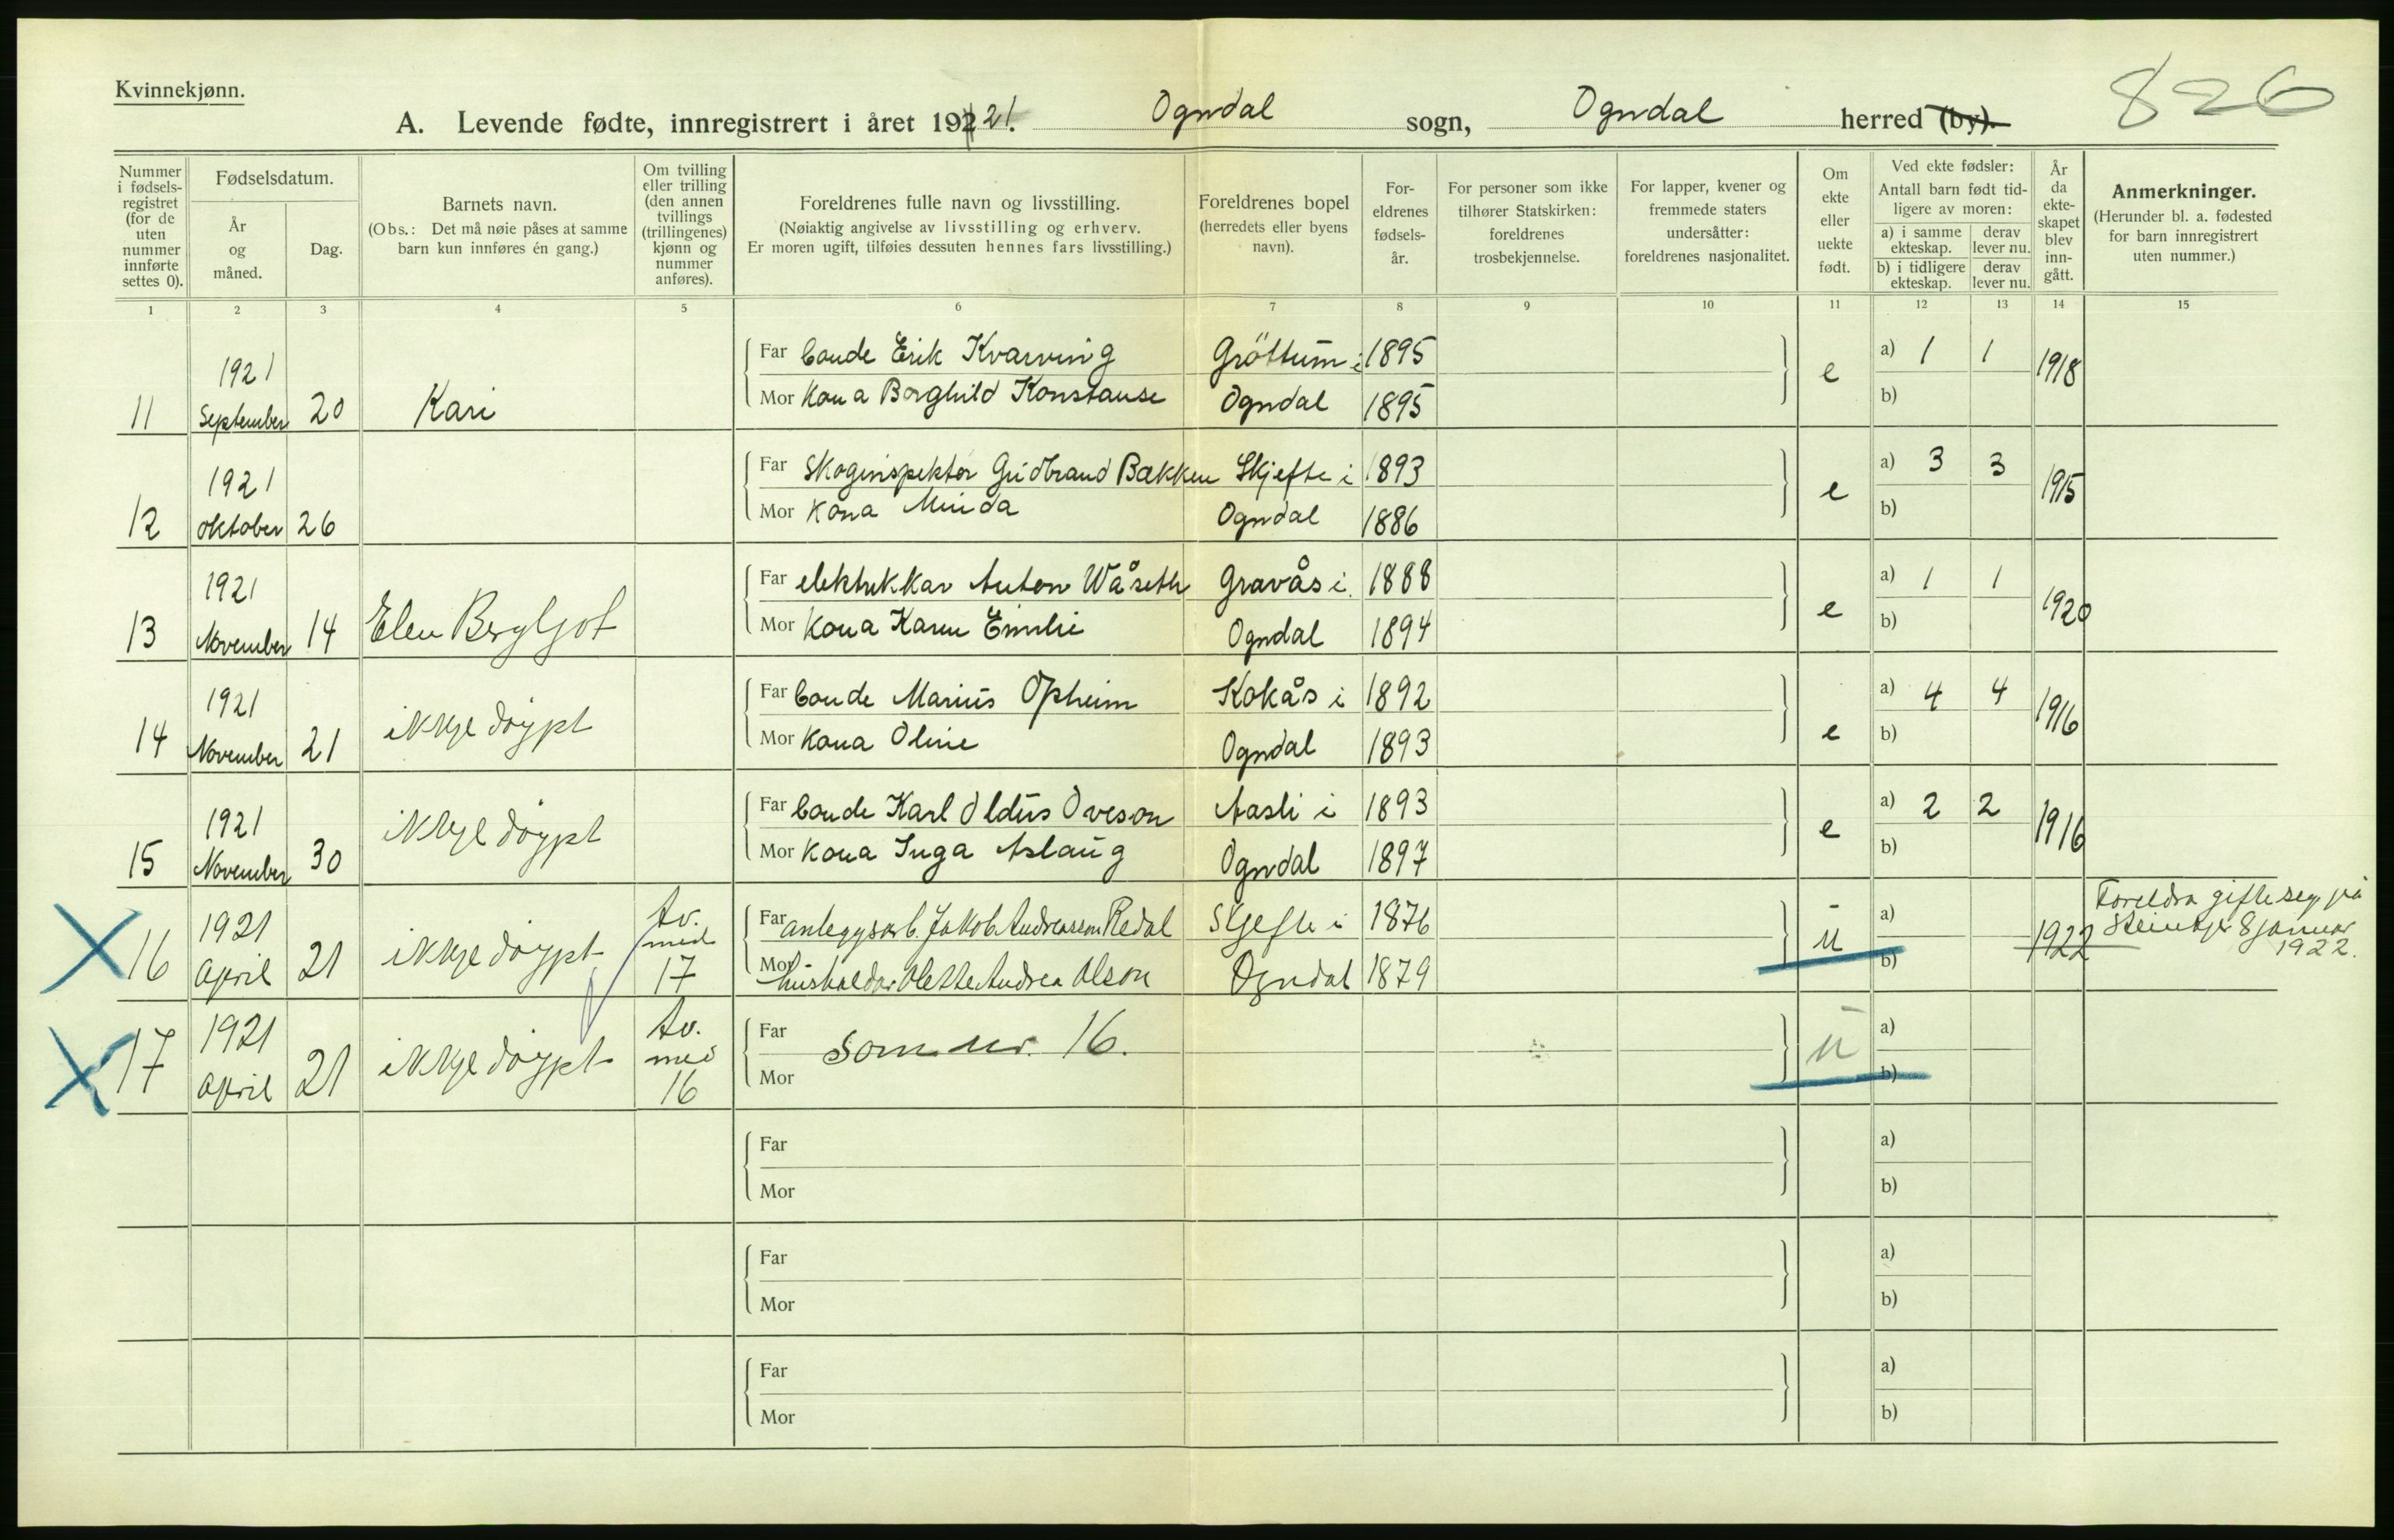 Kvinnekjønn.
826
A. Levende fødte, innregistrert i året 192 21. Ogndal sogn, Ogndal herred (by).
Nummer i fødsels-registret (for de uten nummer innførte settes 0).
Fødselsdatum.
År og måned.
Dag.
Barnets navn.
(Obs.: Det må nøie påses at samme barn kun innføres én gang.)
Om tvilling eller trilling (den annen tvillings (trillingenes) kjønn og nummer anføres).
Foreldrenes fulle navn og livsstilling.
(Nøiaktig angivelse av livsstilling og erhverv.
Er moren ugift, tilføies dessuten hennes fars livsstilling.)
Foreldrenes bopel
(herredets eller byens navn).
For-eldrenes fødsels-år.
For personer som ikke tilhører Statskirken: foreldrenes trosbekjennelse.
For lapper, kvener og fremmede staters undersåtter: foreldrenes nasjonalitet.
Om ekte eller uekte født.
Ved ekte fødsler:
Antall barn født tid-ligere av moren:
a) i samme ekteskap.
derav lever nu.
b) i tidligere ekteskap.
derav lever nu.
År da ekte-skapet blev inn-gått.
Anmerkninger.
(Herunder bl. a. fødested for barn innregistrert uten nummer.)
1 2 3 4 5 6 7 8 9 10 11 12 13 14 15
1921 Far bonde Erik Kvarving Gröttum i 1895 a) 1 1
11 September 20 Kari Mor Kona Borghild Konstanse Ogndal 1895 e b) 1918
1921 Far Skoginspektør Gudbrand Bækken Skjefte i 1893 a) 3 3
12 oktober 26 Mor Kona Minda Ogndal 1886 e b) 1915
1921 Far elektrikkar Anton Wåseth Gravås i 1888 a) 1 1
13 November 14 Elen Bergljot Mor Kona Karen Emilie Ogndal 1894 e b) 1920
1921 Far bonde Marius Opheim Kokås i 1892 a) 4 4
14 November 21 ikkje döypt Mor Kona Oline Ogndal 1893 e b) 1916
1921 Far bonde Karl Oldus Oveson Aasli i 1893 a) 2 2
15 November 30 ikkje döypt Mor Kona Inga Aslaug Ogndal 1897 e b) 1916
1921 tv. med Far anleggsarb. Jakob Andreassen Redal Skjefte i 1876 a) Foreldra gifte seg på
16 april 21 ikkje döypt 17 Mor husholdar Olette Andrea Olson Ogndal 1879 u b) 1922 Steinkjer 8 januar
1922.
1921 tv. med Far som nr. 16. a)
17 april 21 ikkje döypt 16 Mor u b)
Far a)
Mor b)
Far a)
Mor b)
Far a)
Mor b)